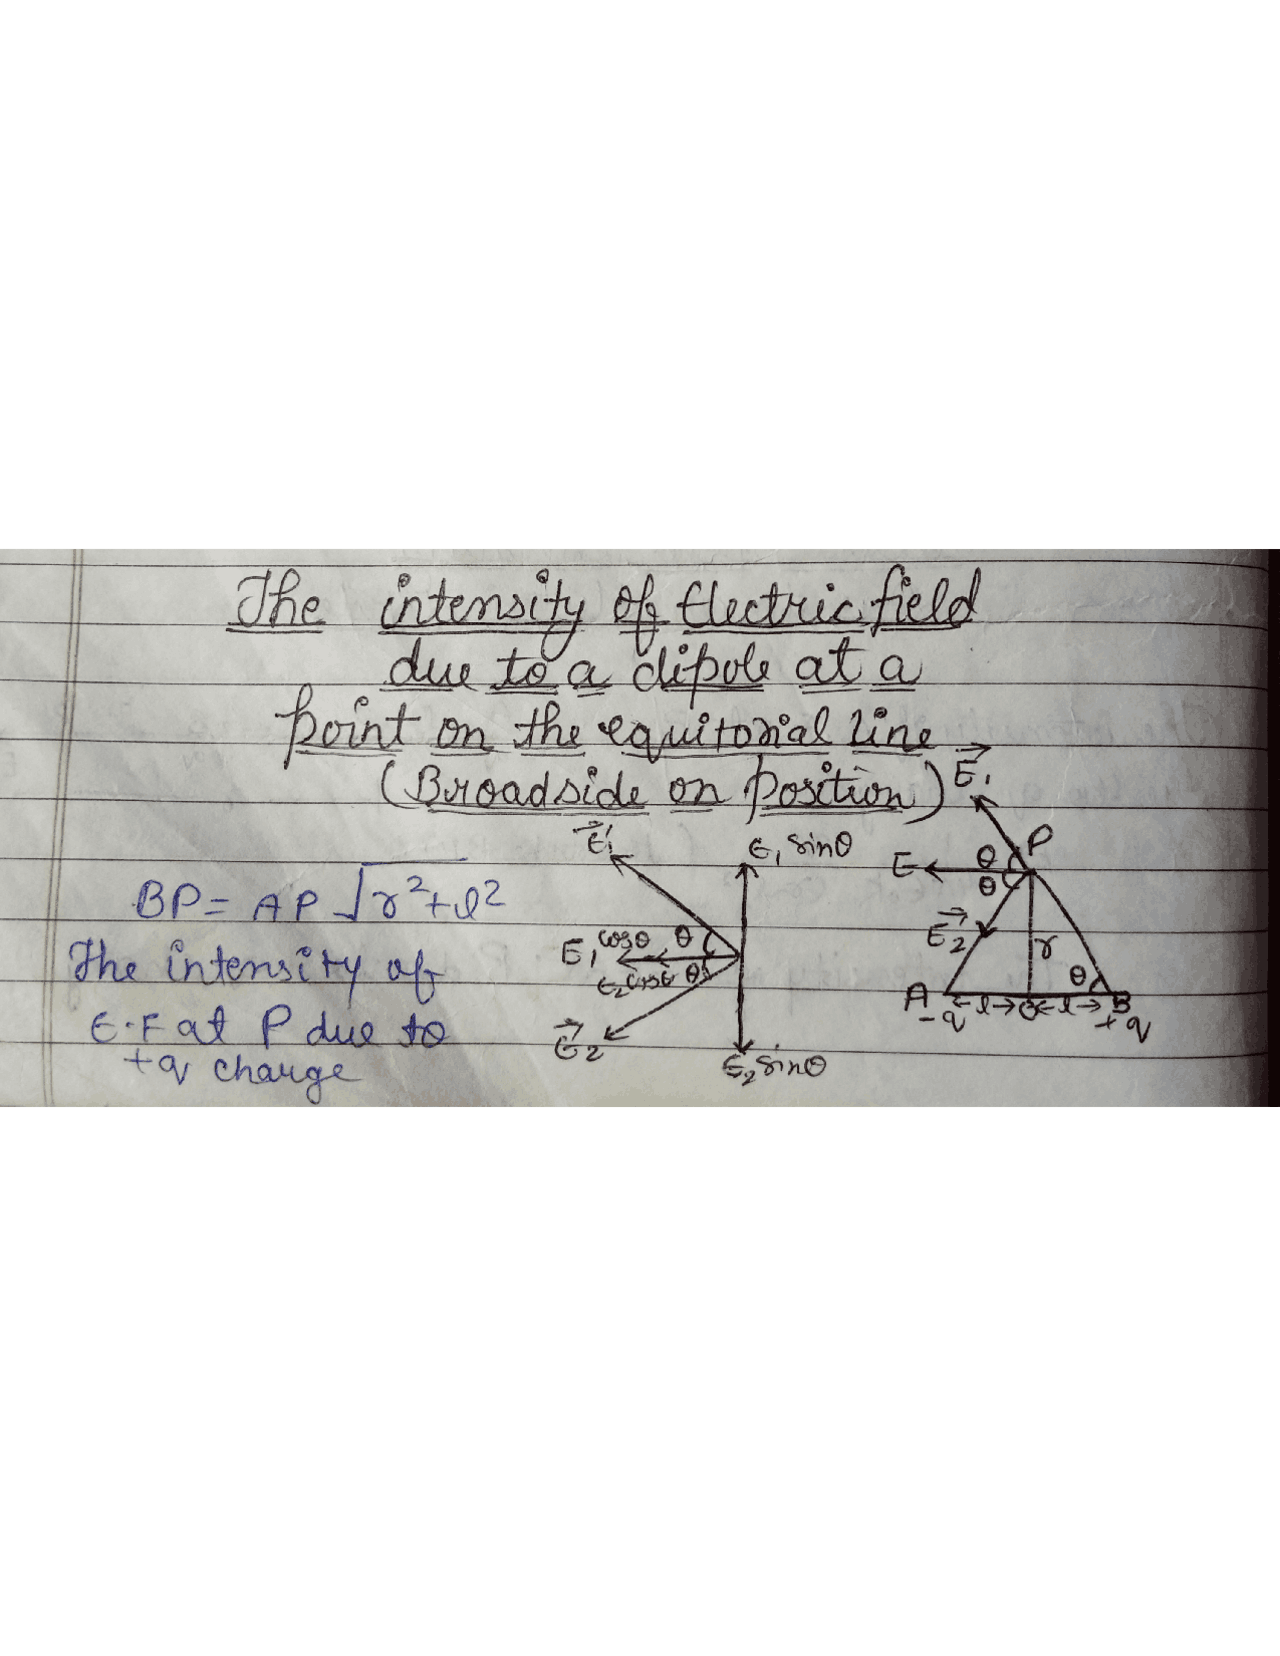 The intensity of Electric field
due to a dipole at a
point on the equitorial line
(Broadside on position)
BP = AP √r²+l²
The intensity of
E.F at P due to
+q charge
E⃗₁
E₁ sinθ
E₁ cosθ θ
E₂ cosθ θ
E⃗₂
E₂ sinθ
E⃗₁
P
E θ
θ
E⃗₂
r
θ
A ←l→ O ←l→ B
-q +q